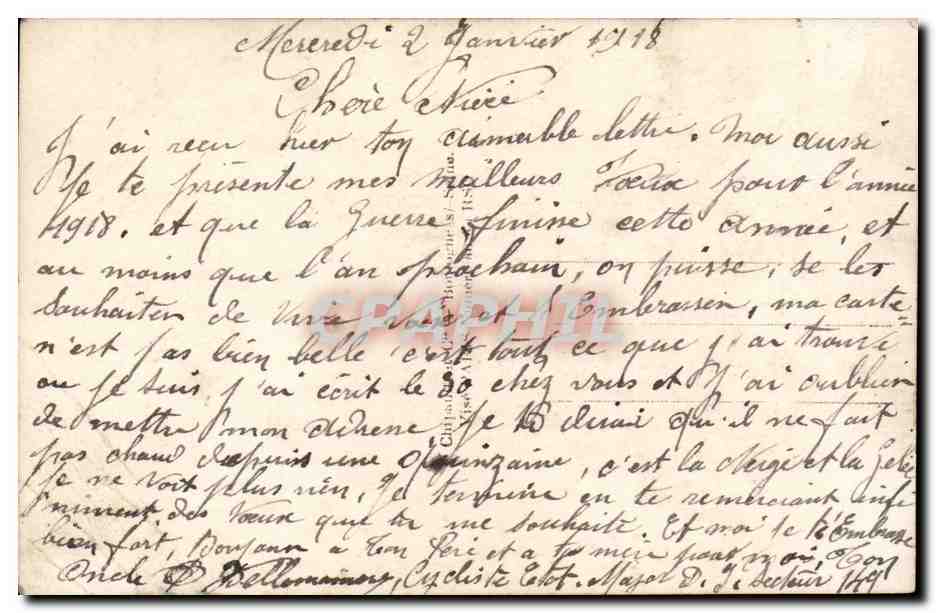 Mercredi 2 Janvier 1918
Chere Niece
J'ai recu hier ton aimable lettre. Moi aussi
Je te présente mes meilleurs Voeux pour l'année
1918. et que la Guerre finisse cette année, et
au moins que l'an prochain, on puisse, se les
souhaiter de vive voix et s'Embrasser, ma carte
n'est pas bien belle c'est tout ce que j'ai trouvé
ou je suis, j'ai écrit le 30 chez vous et j'ai oublier
de mettre mon adresse, Je te dirai qu'il ne fait
pas chaud depuis une Quinzaine, c'est la Neige et la Gelée
Je ne voit plus rien, Je termine en te remerciant infi
niment des Voeux que tu me souhaite. Et moi je t'Embrasse
bien fort, Bonjour a Ton Père et a ta mère pour moi, Ton
Oncle Cycliste Etat-Major D. I. Secteur 149
CPAPHIL